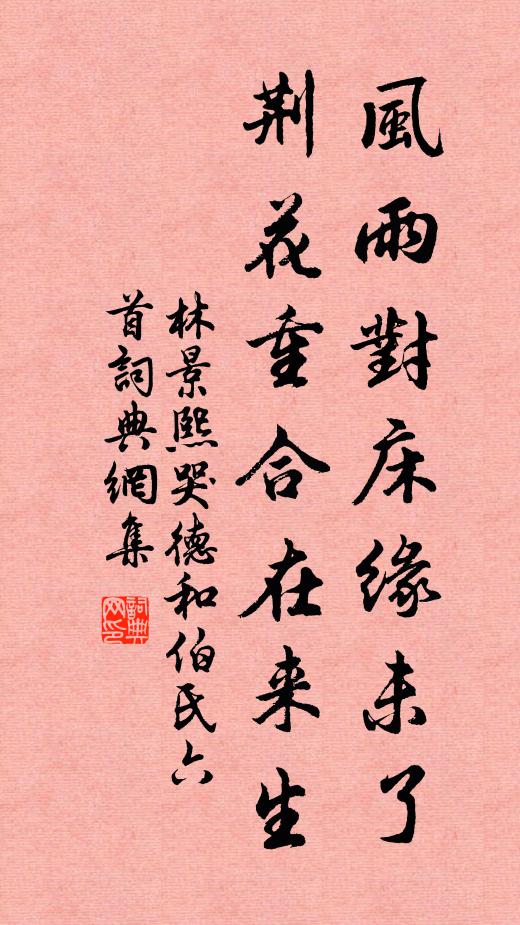 風雨對床緣未了
荆花重合在来生
林景熙哭德和伯氏六
首詞典網集
詞典
网印